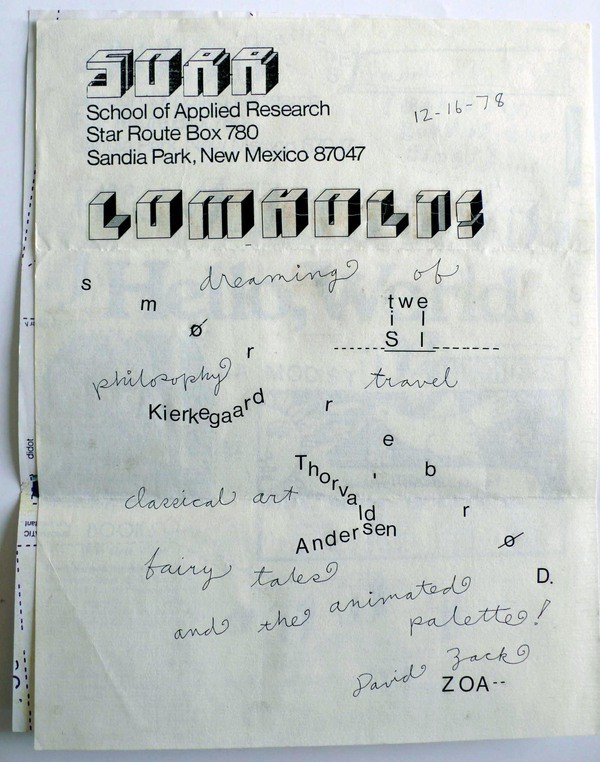 SOAR
School of Applied Research
Star Route Box 780
Sandia Park, New Mexico 87047
12-16-78
LOMHOLT!
dreaming of
s
m
ø
r
r
e
b
r
ø
D.
twe
i l
S l
philosophy travel
Kierkegaard
classical art
Thorvald
Andersen
fairy tales
and the animated
palette!
David Zack
ZOA--
didot